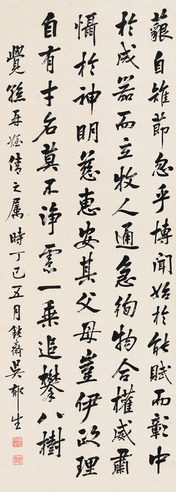 藐自雉節忽乎博聞始於能賦而彰中
於成器而立牧人通急徇物合權威肅
懾於神明慈惠安其父母豈伊政理
自有才名莫不諍雲一乘追攀八樹
覺孫再姪倩之屬時丁巳五月鈍齋吳郁生